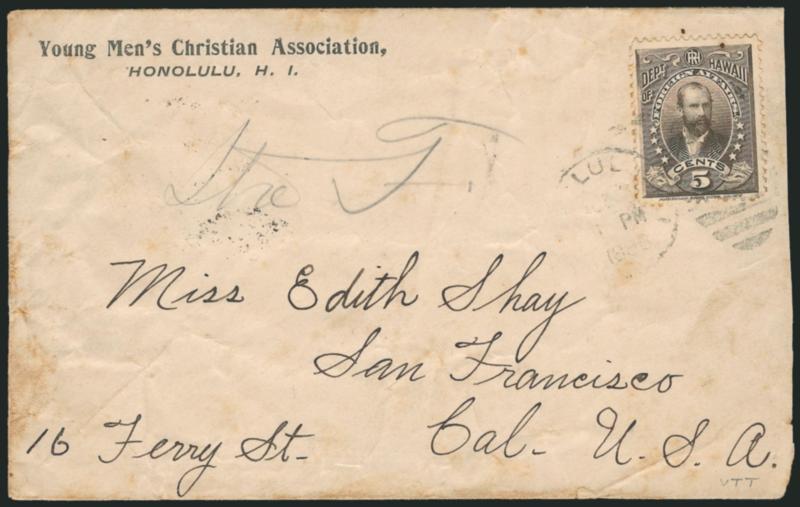 Young Men's Christian Association,
HONOLULU, H. I.
DEPT OF FOREIGN AFFAIRS. HAWAII
CENTS
5
LUL
PM
Miss Edith Shay
San Francisco
16 Ferry St-
Cal- U. S. A.
VTT